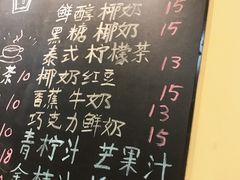 鲜醇椰奶 15
黑糖椰奶 15
泰式柠檬茶 13
茶 10 椰奶红豆 15
香蕉牛奶 13
10 巧克力鲜奶 15
青柠汁 芒果汁
18